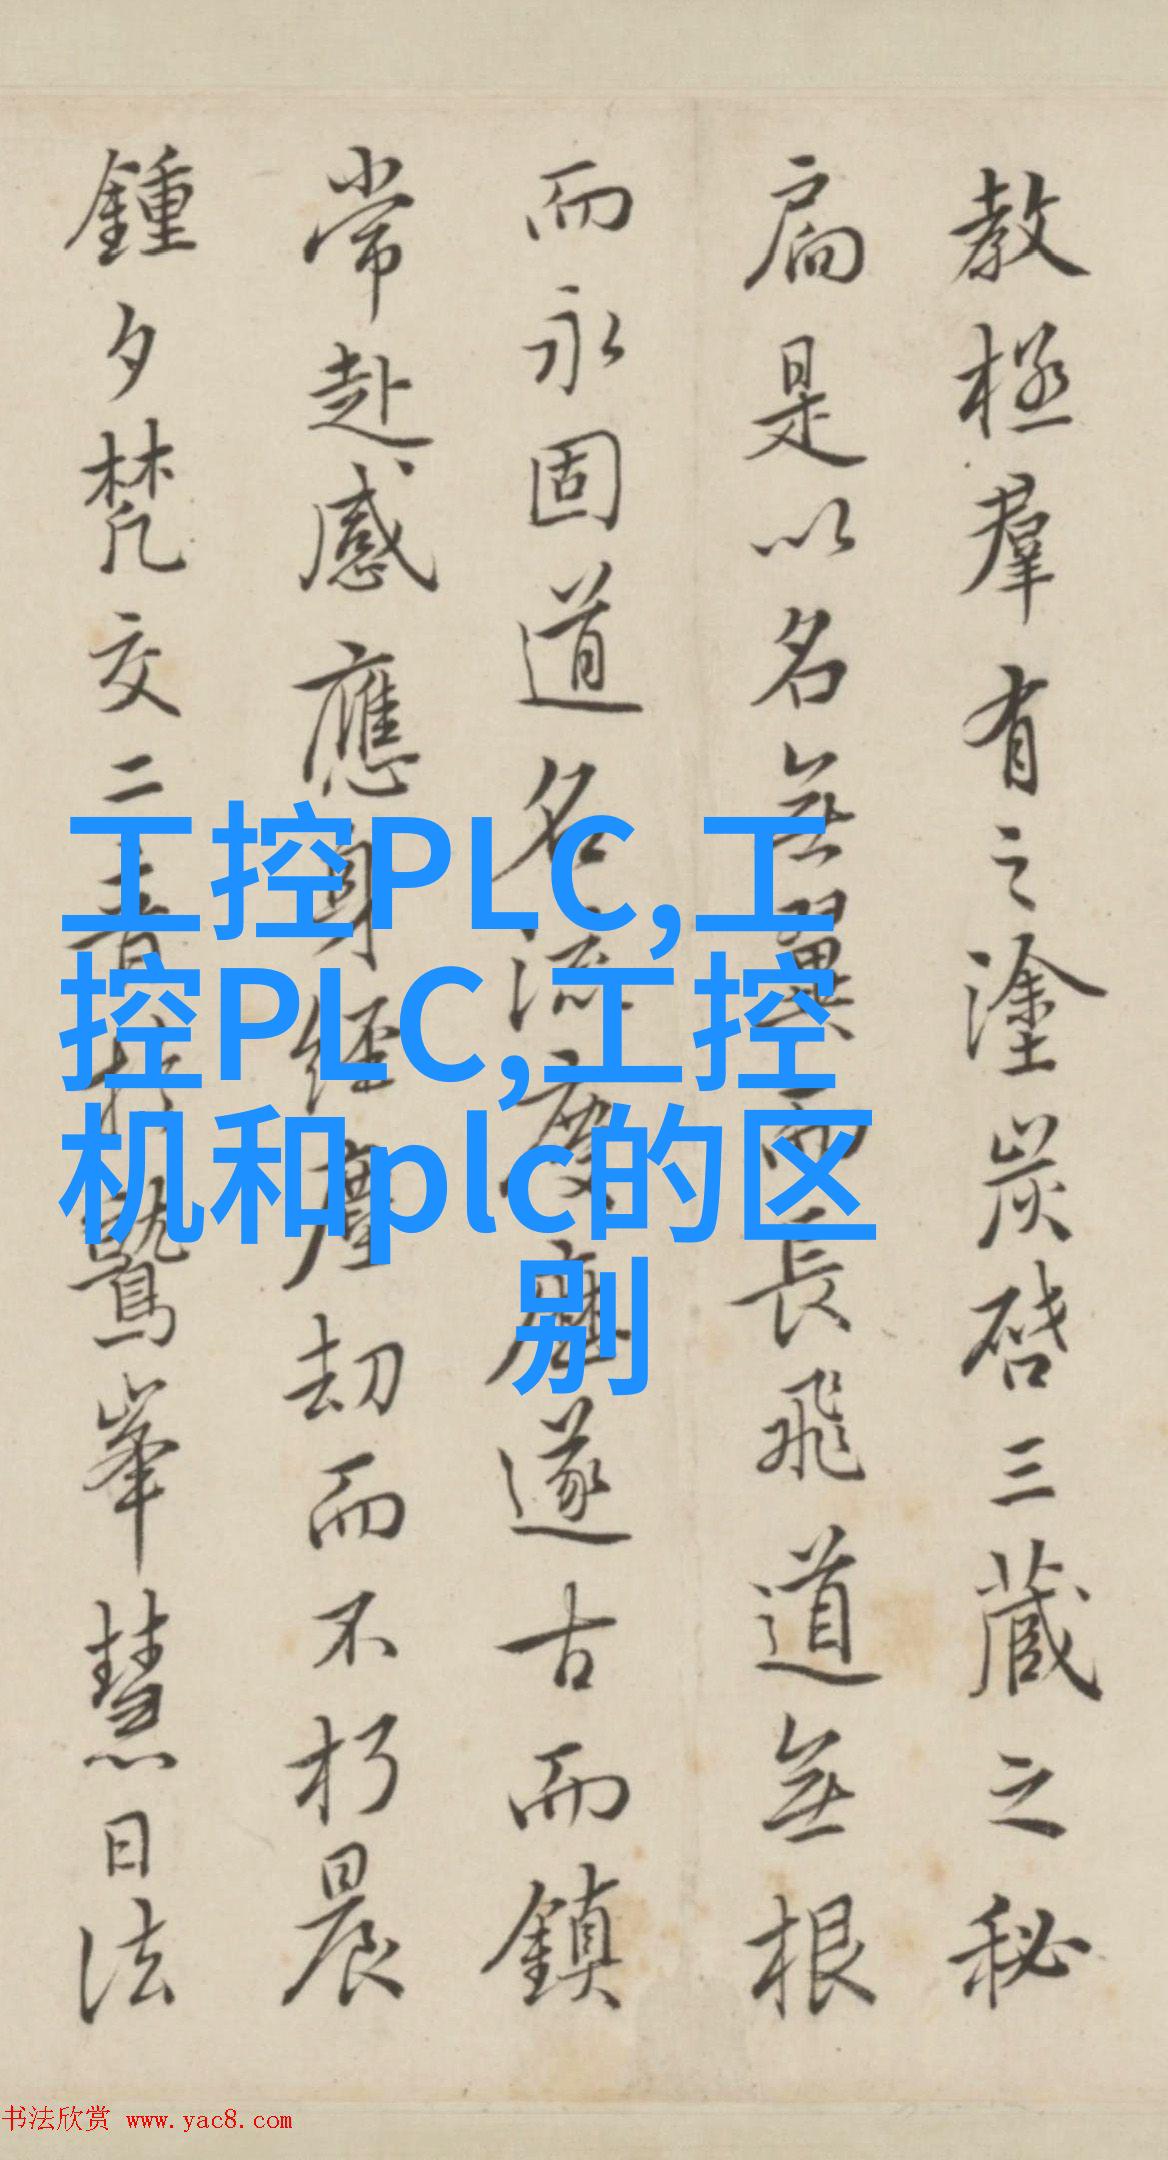 教極羣有之塗炭啓三藏之秘
扃是以名無翼而長飛道無根
而永固道名流慶歷遂古而鎮
常赴感應身經塵劫而不朽晨
鍾夕梵交二音於鷲峯慧日法
工控PLC,工
控PLC,工控
机和plc的区
别
书法欣赏 www.yac8.com